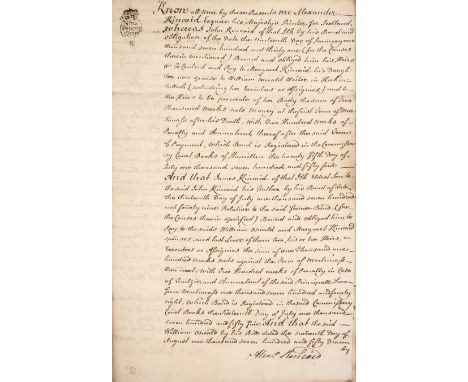 Know all men by these Presents me Alexander
Kincaid Esquire his Majesty's Printer for Scotland,
whereas John Kincaid of that Ilk by his Bond and
Obligation of the Date the tenth Day of January one
thousand seven hundred and thirty one (for the Causes
therein mentioned) Bound and Obliged him his Heirs
to Content and Pay to Margaret Kincaid his Daugh
ter now spouse to William Writer in
(secluding her Executors or Assignies) and to
the Heirs to be procreate of her Body the sum of Two
thousand merks Scots money at the first Term of Mar
timass after his Death, with Two Hundred merks of
Penalty and Annualrent thereof after the said Term
of Payment, which Bond is Registered in the Commissa
ry Court Books of Hamilton the twenty fifth Day of
July one thousand seven hundred and fifty five
And that James Kincaid of that Ilk Eldest Son to
the said John Kincaid his Father by his Bond of date
the thirteenth Day of July one thousand seven hundred
and forty nine Relative to the said former Bond (for
the Causes therein specified) Bound and Obliged him to
Pay to the said William and Margaret Kincaid
spouses and last Liver of them two, his or her Heirs,
Executors or Assignies the Sum of one Thousand one
hundred merks Scots against the Term of Martinmass
then next, with Two Hundred merks of Penalty in Case
of and Annualrent of the said Principall Sum
from Martinmass one thousand seven hundred and forty
eight, which Bond is Registered in the said Commissary
Court Books the Sixteenth Day of July one thousand
seven hundred and fifty five And that the said
William by his Bill dated the sixteenth Day of
August one thousand seven hundred and fifty Drawn
by
Alexr Kincaid